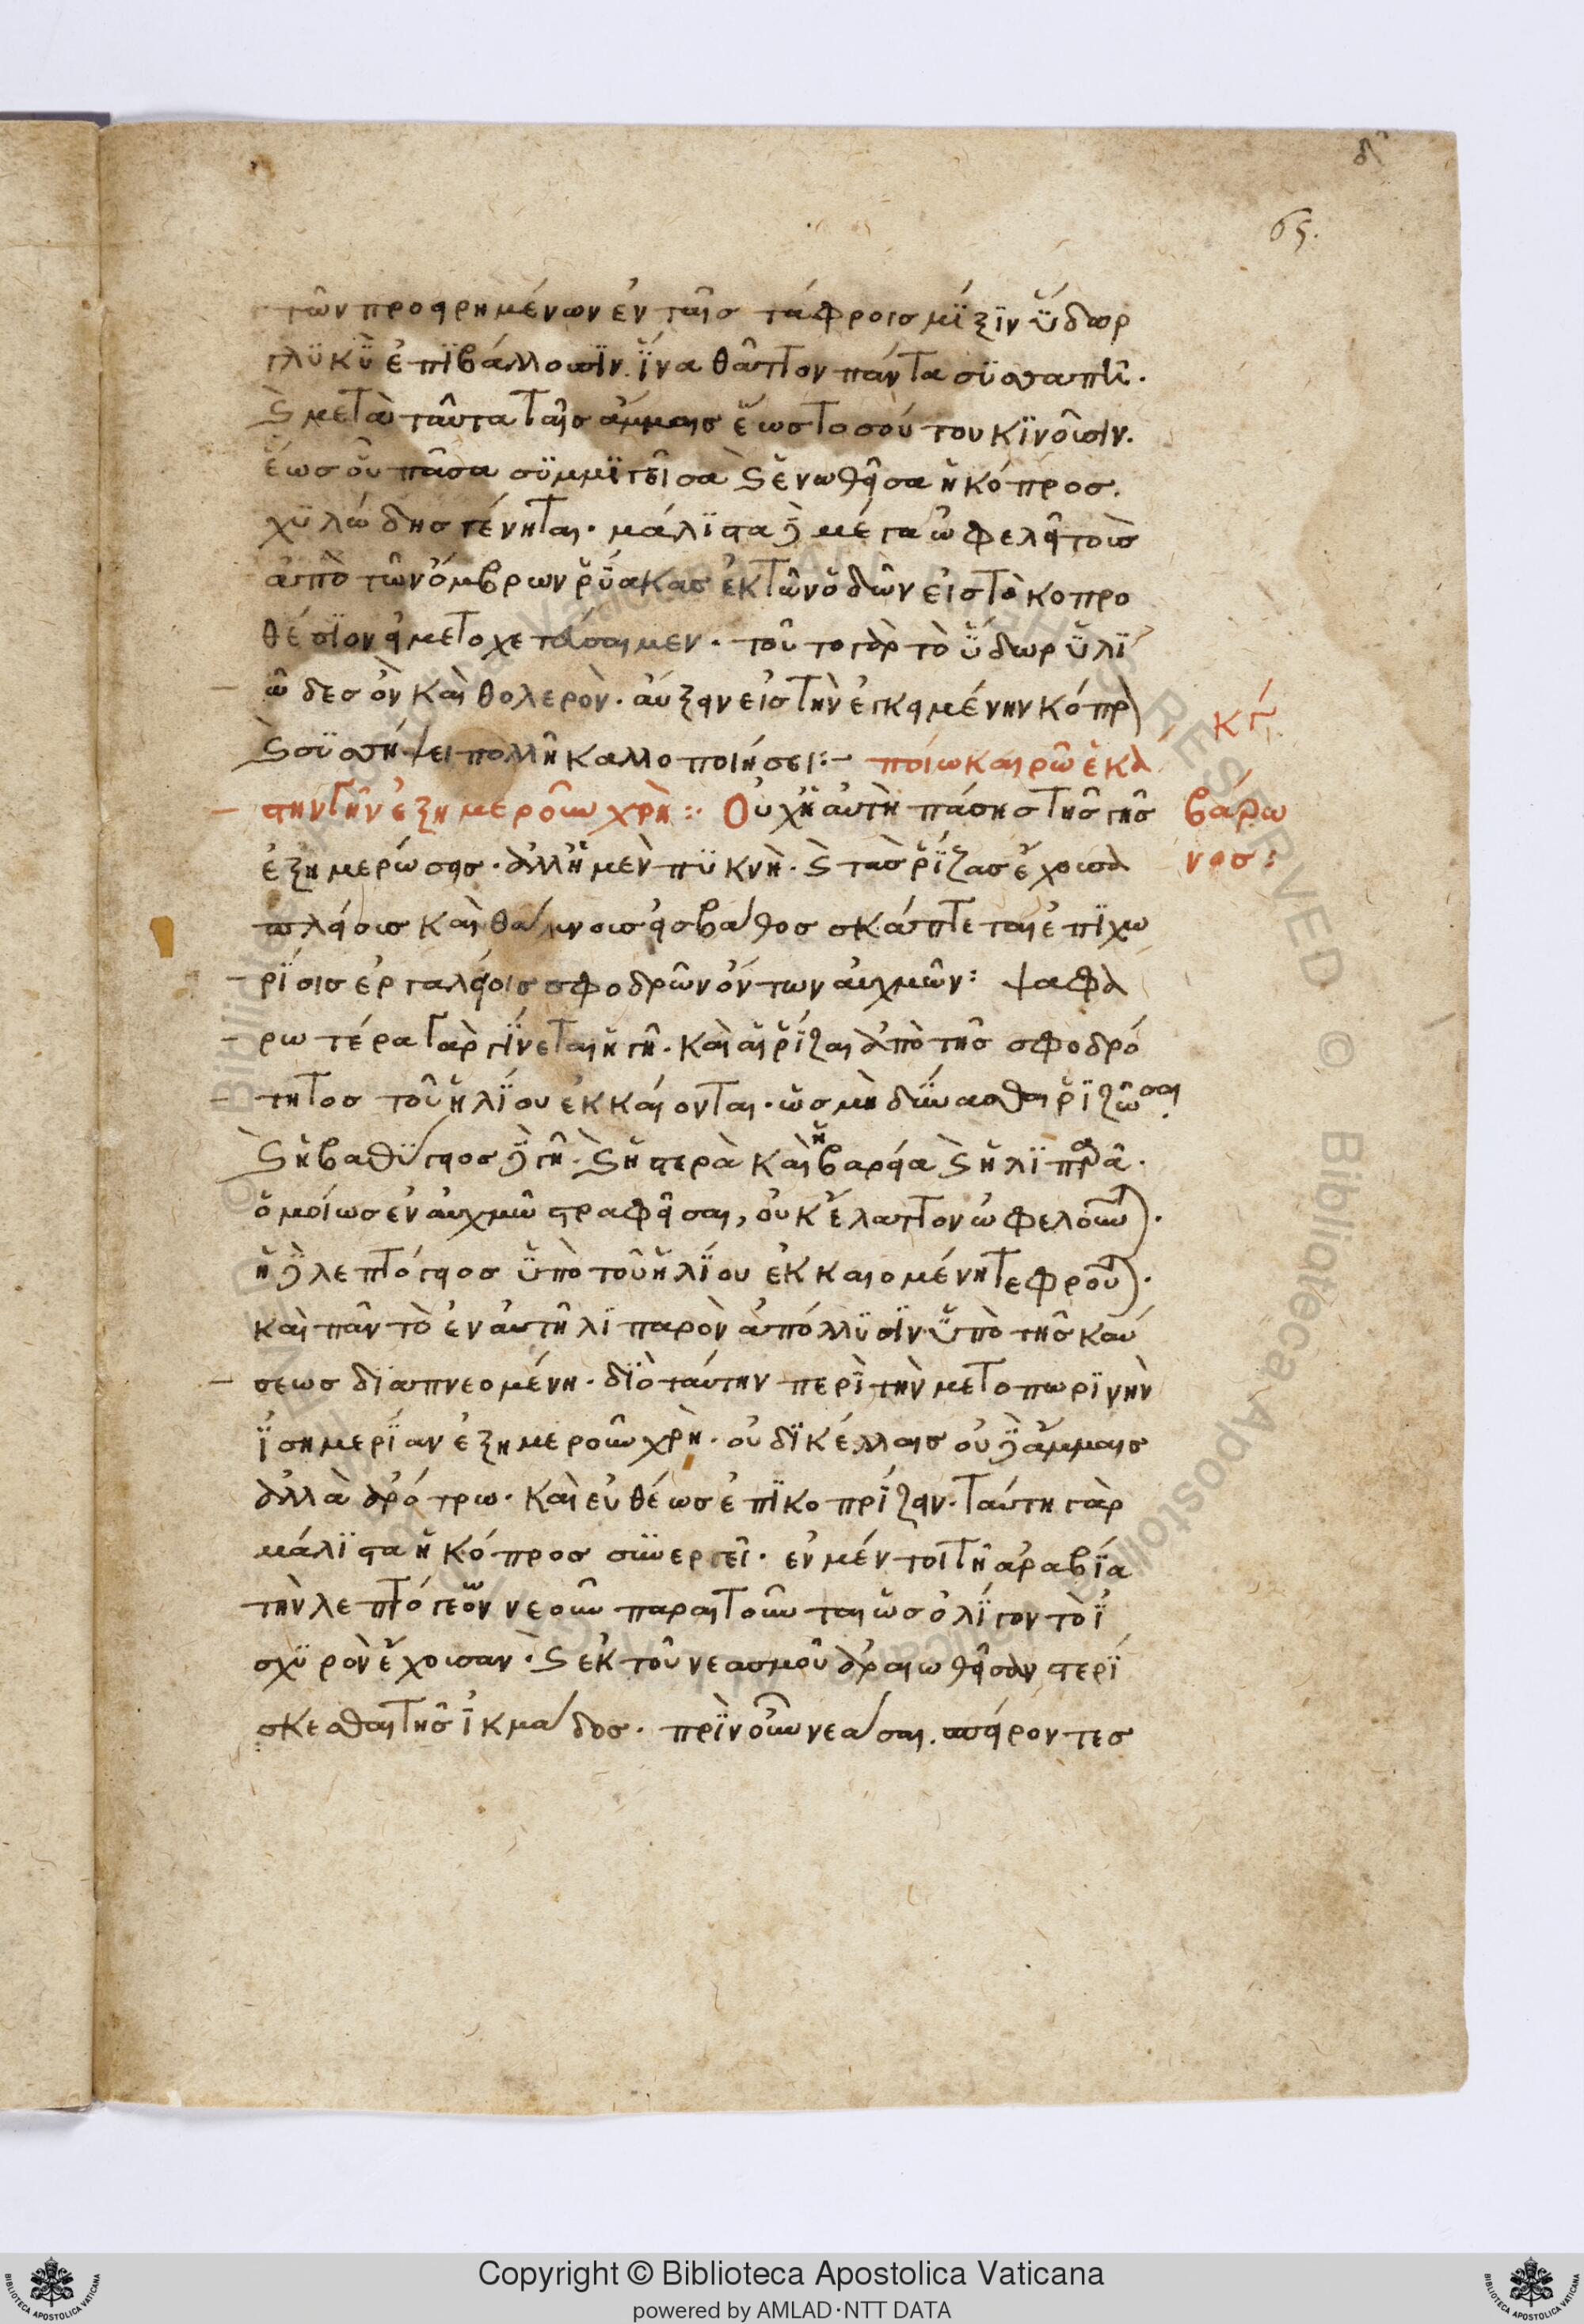 δ
65.
τῶν προειρημένων ἐν ταῖς τάφροις μίξιν ὕδωρ
γλυκὺ ἐπιβάλλουσιν. ἵνα θᾶττον πάντα συσσαπῆ.
καὶ μετὰ ταῦτα ταῖς ἄμμαις ἕως τοσούτου κινοῦσιν.
ἕως οὗ πᾶσα συμμιγεῖσα καὶ ἑνωθεῖσα ἡ κόπρος.
χυλώδης γένηται. μάλιστα δὲ μέγα ὠφελεῖ τοὺς
ἀπὸ τῶν ὄμβρων ῥύακας ἐκ τῶν ὁδῶν εἰς τὸ κοπρο
θέσιον εἰ μετοχετεύσαιμεν. τοῦτο γὰρ τὸ ὕδωρ ὑλι
ῶδες ὂν καὶ θολερὸν. αὔξει νεἰς τὴν ἐγκειμένην κόπρον
καὶ συσσήψει πολλῆ καλλοποιήσει:– ποίω καιρῶ ἑκά κγ
στην γῆν ἐξημεροῦν χρὴ:· Οὐχ ἡ αὐτὴ πάσης τῆς γῆς βάρω
ἐξημερώσεις. ἀλλ' ἡ μὲν πυκνὴ. καὶ τὰς ῥίζας ἔχουσα νος:
πλείους καὶ θάμνους εἰς βάθος σκάπτεται ἐπιχω
ρίοις ἐργαλείοις σφοδρῶν ὄντων αὐχμῶν: ψαφα
ρωτέρα γὰρ γίνεται ἡ γῆ. καὶ αἱ ῥίζαι ἀπὸ τῆς σφοδρό
τητος τοῦ ἡλίου ἐκκαίονται. ὡς μὴ δύνασθαι ῥιζῶσαι.
καὶ ἡ βαθύγειος δὲ γῆ. καὶ ἡ στερὰ καὶ ἡ βαρεῖα καὶ ἡ λιπαρὰ.
ὁμοίως ἐν αὐχμῶ στραφεῖσαι, οὐκ ἔλαττον ὠφελοῦνται.
ἡ δὲ λεπτόγειος ὑπὸ τοῦ ἡλίου ἐκκαιομένη τεφροῦται.
καὶ πᾶν τὸ ἐν αὐτῆ λιπαρὸν ἀπόλλυσιν ὑπὸ τῆς καύ
σεως διαπνεομένη. διὸ ταύτην περὶ τὴν μετοπωρινὴν
ἰσημερίαν ἐξημεροῦν χρὴ. οὐ δικέλλαις οὐδὲ ἄμμαις
ἀλλὰ ἀρότρω. καὶ εὐθέως ἐπικοπρίζειν. ταύτη γὰρ
μάλιστα ἡ κόπρος συνεργεῖ. ἐν μέν τοι τῆ ἀραβία
τὴν λεπτόγεων νεοῦν παραιτοῦνται ὡς ὀλίγον τὸ ἰ
σχυρὸν ἔχουσαν. καὶ ἐκ τοῦ νεασμοῦ ἀραιωθεῖσαν στερί
σκεσθαι τῆς ἰκμάδος. πρὶν οὖν νεάσαι. σπείροντες